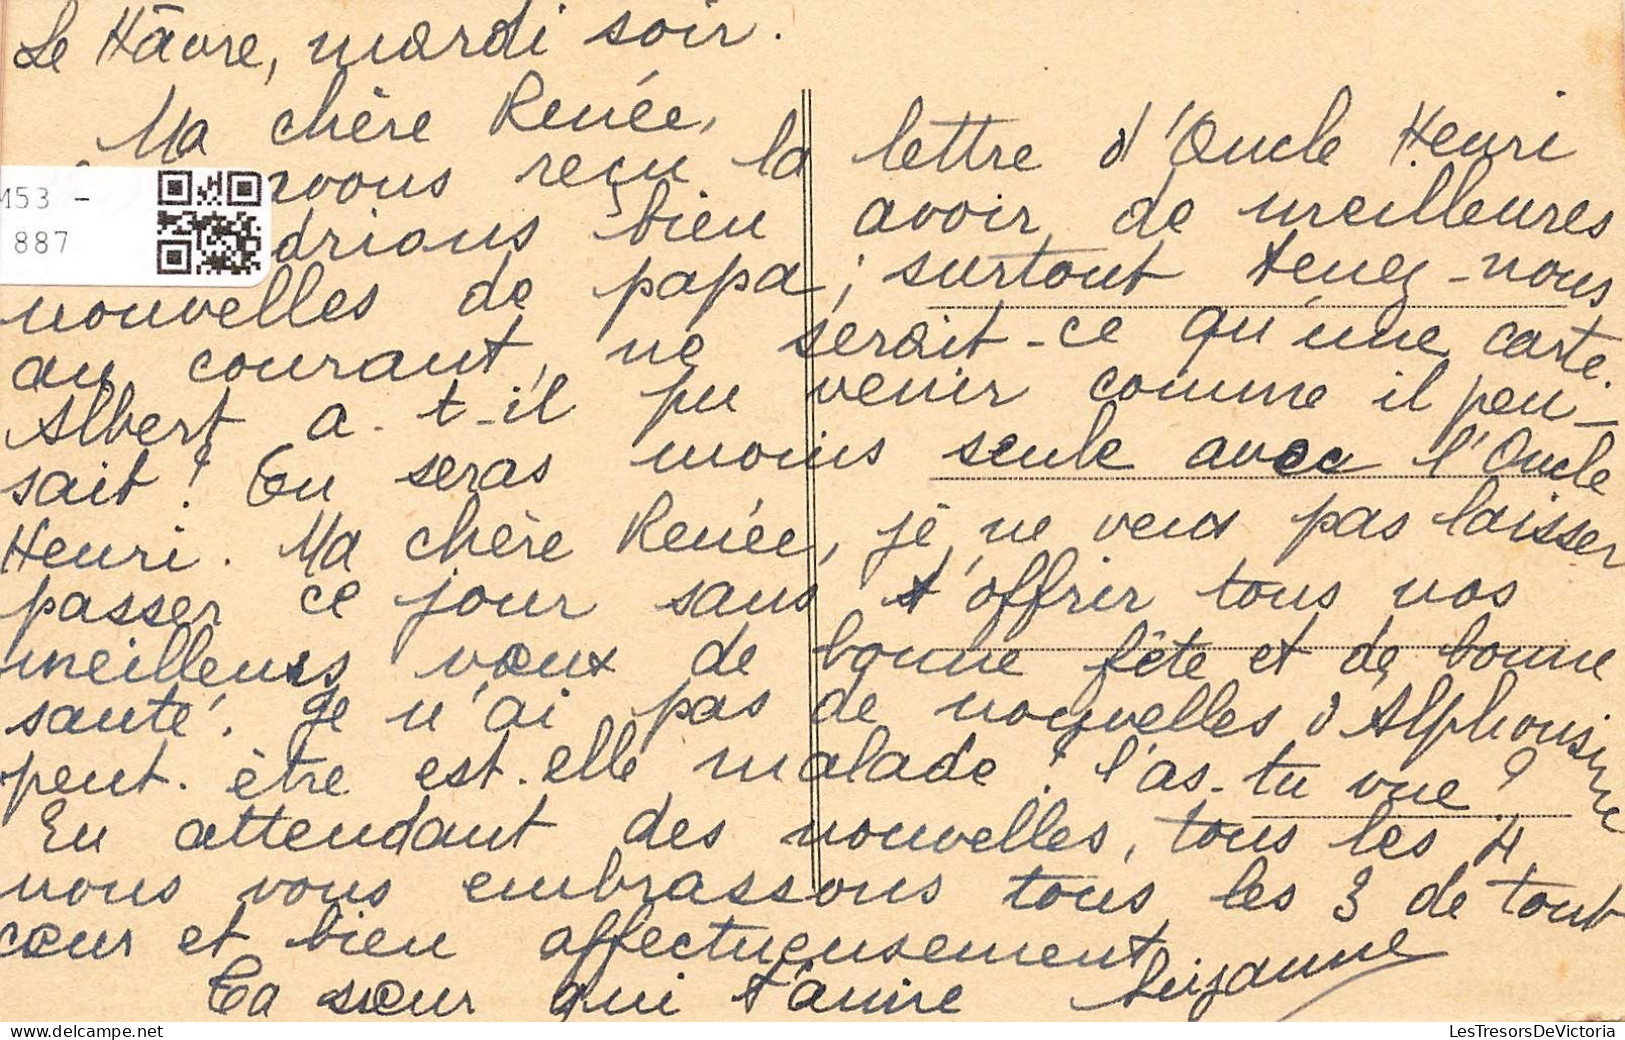 Le Hâvre, mardi soir.
Ma chère Renée,
avons reçu la lettre d'Oncle Henri
drions bien avoir de meilleures
nouvelles de papa ; surtout tenez-nous
au courant, ne serait-ce qu'une carte.
Albert a-t-il pu venir comme il pen-
sait ? Tu seras moins seule avec l'Oncle
Henri. Ma chère Renée, je ne veux pas laisser
passer ce jour sans t'offrir tous nos
meilleurs vœux de bonne fête et de bonne
santé. Je n'ai pas de nouvelles d'Alphonsine
peut-être est-elle malade ? l'as-tu vue ?
En attendant des nouvelles, tous les 4
nous vous embrassons tous les 3 de tout
cœur et bien affectueusement
Ta sœur qui t'aime Suzanne
M53 -
887
LesTresorsDeVictoria